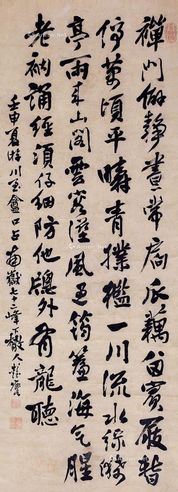 禪門僻靜晝常扃瓜藕留賓屐暫
停萬頃平疇青撲檻一川流水綠縈
亭雨來山閣雲容溼風過筠簾海气腥
老衲誦經須仔細防他牕外有龍聽
壬申夏游川至盦口占南嶽七十二峰下散人